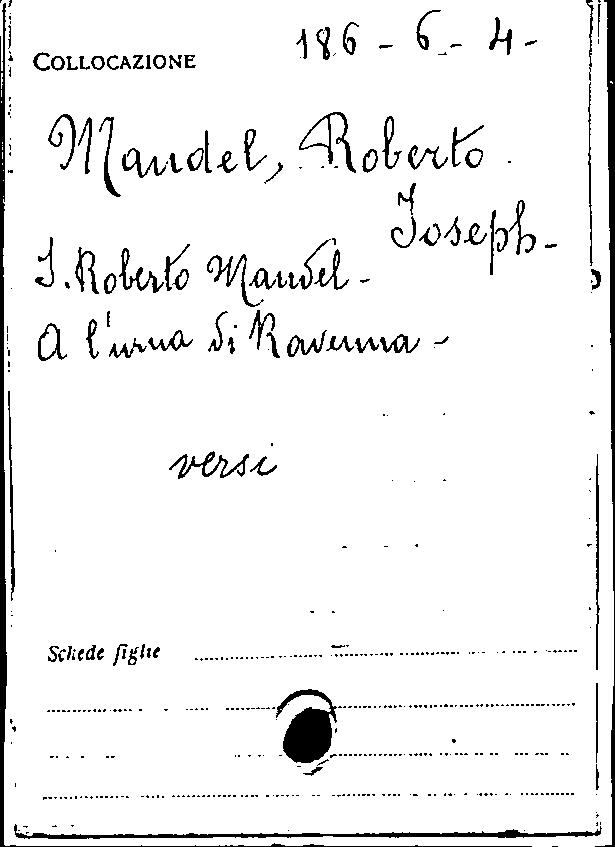 COLLOCAZIONE 186 - 6 - 4 -
Mandel, Roberto
Joseph -
J. Roberto Mandel -
A l'urna di Ravenna -
versi
Schede figlie